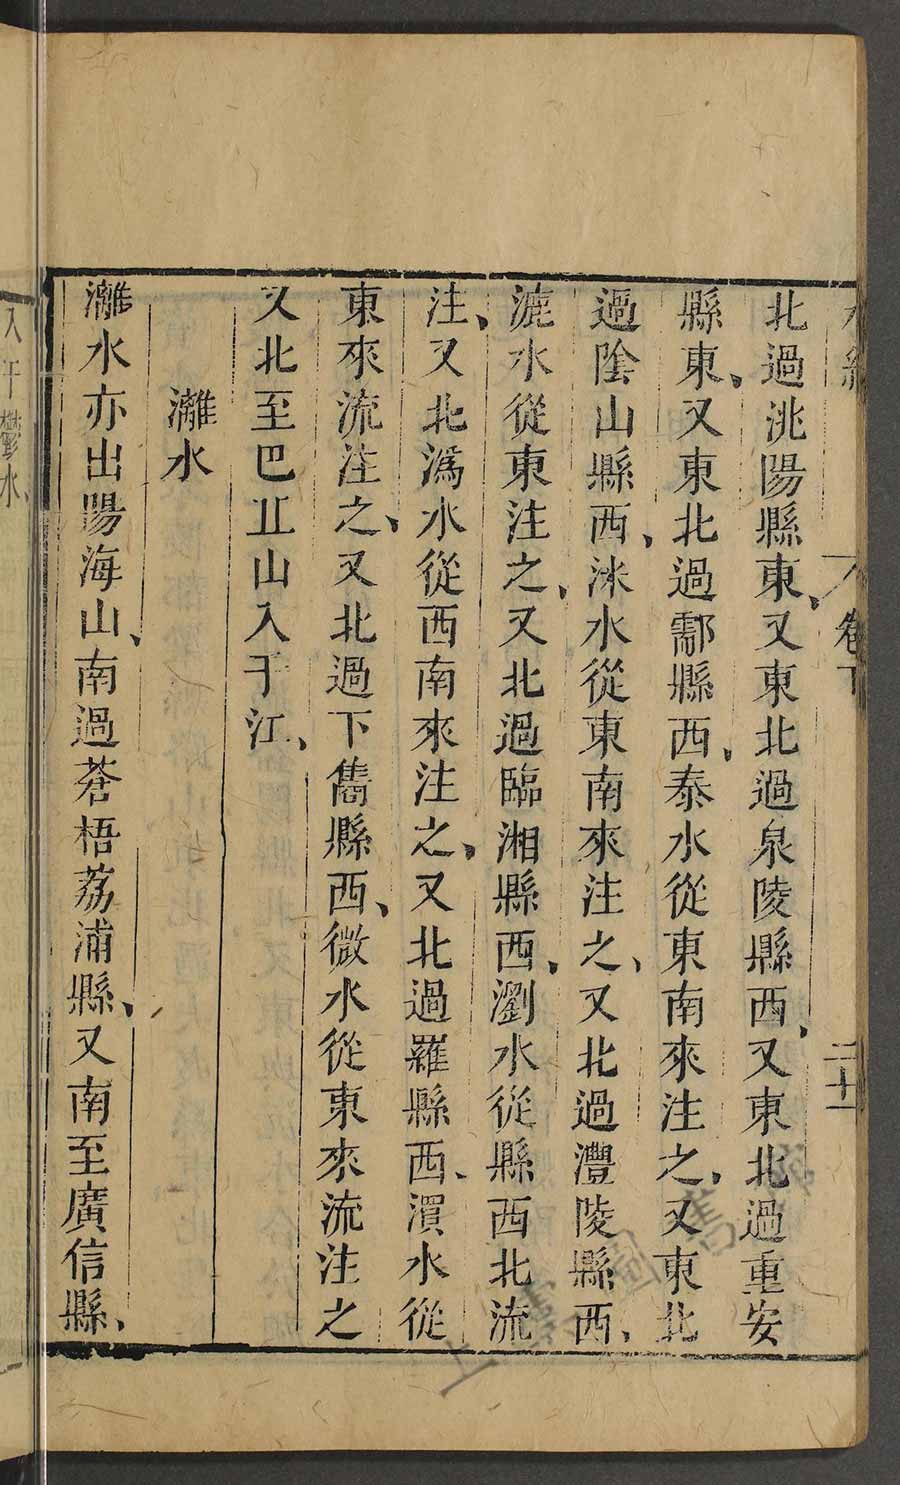 水經 卷下 二十一
北過洮陽縣東、又東北過泉陵縣西、又東北過重安
縣東、又東北過酃縣西、泰水從東南來注之、又東北
過陰山縣西、洣水從東南來注之、又北過澧陵縣西、
漉水從東注之、又北過臨湘縣西、瀏水從縣西北流
注、又北溈水從西南來注之、又北過羅縣西、濆水從
東來流注之、又北過下雋縣西、微水從東來流注之
又北至巴丘山入于江、
灕水
灕水亦出陽海山、南過蒼梧荔浦縣、又南至廣信縣、
入于鬱水、